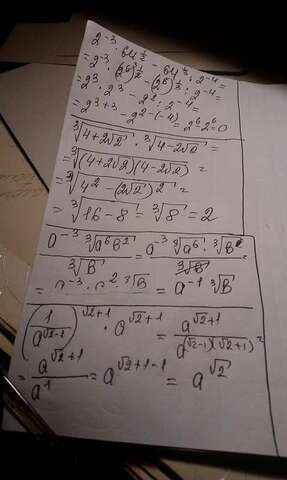 2^{-3} · 64^{\frac{1}{2}} - 64^{\frac{1}{3}} : 2^{-4} =
= 2^{-3} · (2^6)^{\frac{1}{2}} - (2^6)^{\frac{1}{3}} : 2^{-4} =
= 2^3 · 2^3 - 2^2 : 2^{-4} =
= 2^{3+3} - 2^{2-(-4)} = 2^6 2^6 = 0
\sqrt[3]{4+2\sqrt{2}} · \sqrt[3]{4-2\sqrt{2}} =
= \sqrt[3]{(4+2\sqrt{2})(4-2\sqrt{2})} =
= \sqrt[3]{4^2 - (2\sqrt{2})^2} =
= \sqrt[3]{16-8} = \sqrt[3]{8} = 2
\frac{a^{-3} \sqrt[3]{a^6 b^2}}{\sqrt[3]{b}} = \frac{a^{-3} \sqrt[3]{a^6} · \sqrt[3]{b^2}}{\sqrt[3]{b}} =
= a^{-3} · a^2 · \sqrt[3]{b} = a^{-1} \sqrt[3]{b}
(\frac{1}{a^{\sqrt{2}-1}})^{\sqrt{2}+1} · a^{\sqrt{2}+1} = \frac{a^{\sqrt{2}+1}}{a^{(\sqrt{2}-1)(\sqrt{2}+1)}} =
= \frac{a^{\sqrt{2}+1}}{a^1} = a^{\sqrt{2}+1-1} = a^{\sqrt{2}}